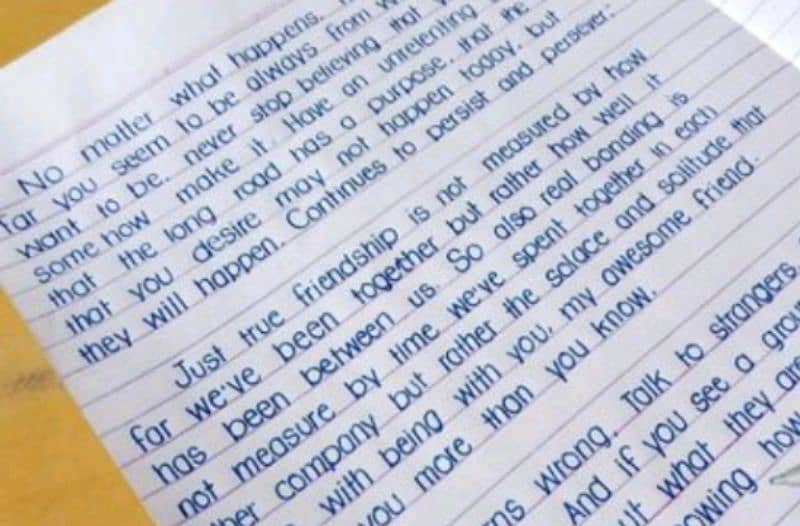 No matter what happens.
far you seem to be always from
want to be, never stop believing that
some how make it. Have an unrelenting
that the long road has a purpose, that the
that you desire may not happen today, but
they will happen. Continues to persist and persever.
Just true friendship is not measured by how
far we've been together but rather how well it
has been between us. So also real bonding is
not measure by time we've spent together in each
ther company but rather the solace and solitude that
with being with you, my awesome friend.
you more than you know.
ns wrong. Talk to strangers
And if you see a grou
ut what they are
owing how